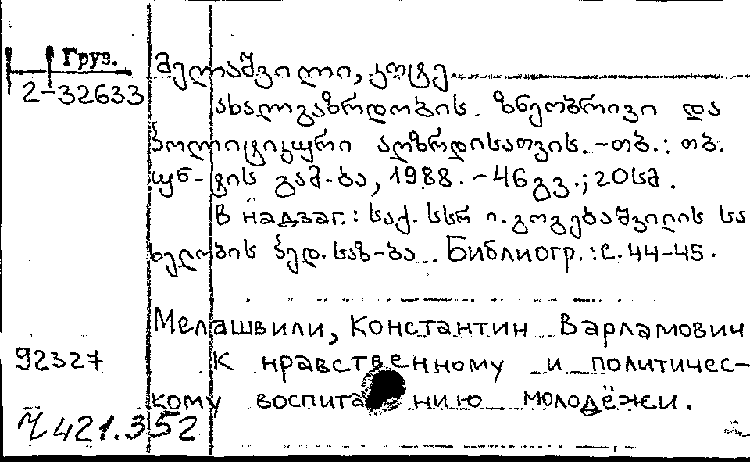 Груз.
მელაშვილი, კოტე.
2-32633
ახალგაზრდობის ზნეობრივი და
პოლიტიკური აღზრდისათვის. - თბ.: თბ.
უნ-ტის გამ-ბა, 1988. - 46 გვ.; 20 სმ.
В надзаг.: საქ. სსრ ი. გოგებაშვილის სა
ხელობის პედ. საზ-ბა. Библиогр.: с. 44-45.
Мелашвили, Константин Варламович
92327
К нравственному и политичес-
кому воспитанию молодёжи.
Ч 421.352